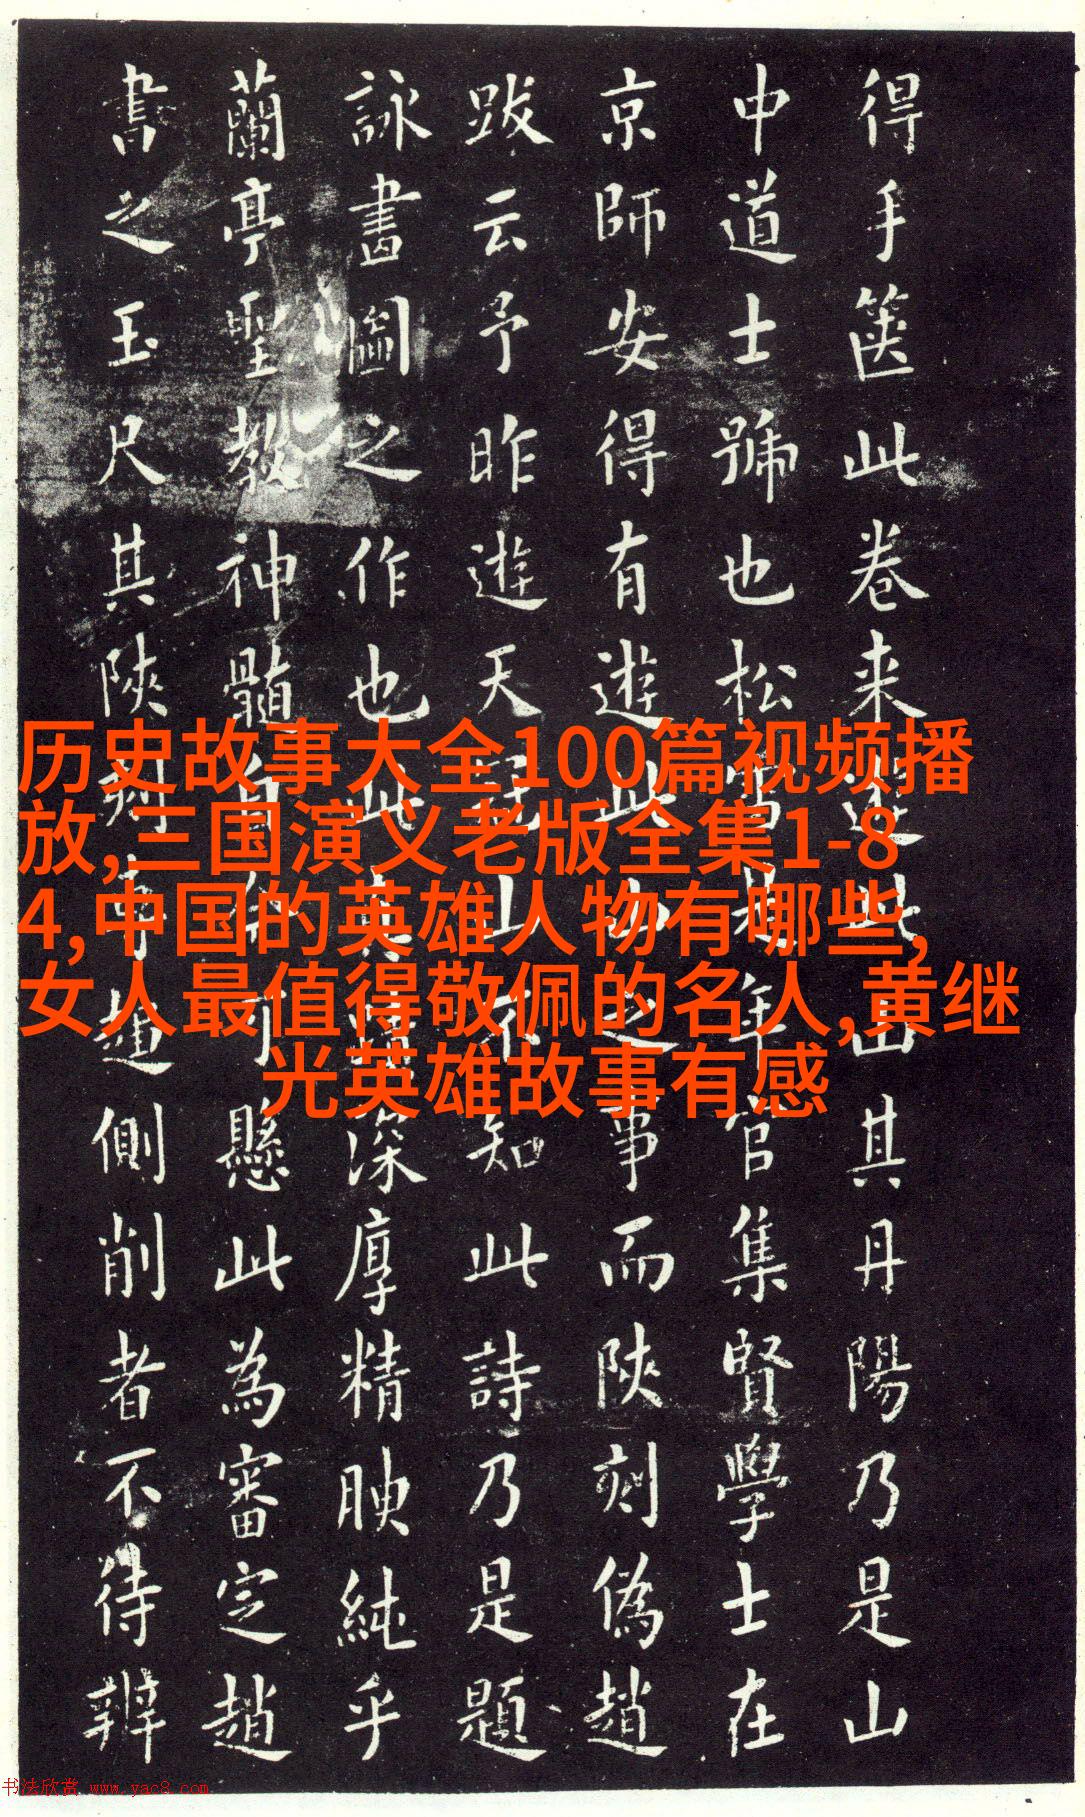 得手箧此卷来山其丹陽乃是山
中道士號也松雪年官集賢學士在
京師安得有遊此山之事而陝刻偽趙
跋云予昨遊天冠山不知此詩乃是題
詠書圖之作也此真深厚精腴純乎
蘭亭聖教神髓自可懸此為審定趙
書之玉尺其陝刻趙側削者不待辨
历史故事大全100篇视频播
放,三国演义老版全集1-8
4,中国的英雄人物有哪些,
女人最值得敬佩的名人,黄继
光英雄故事有感
书法欣赏 www.yac8.com